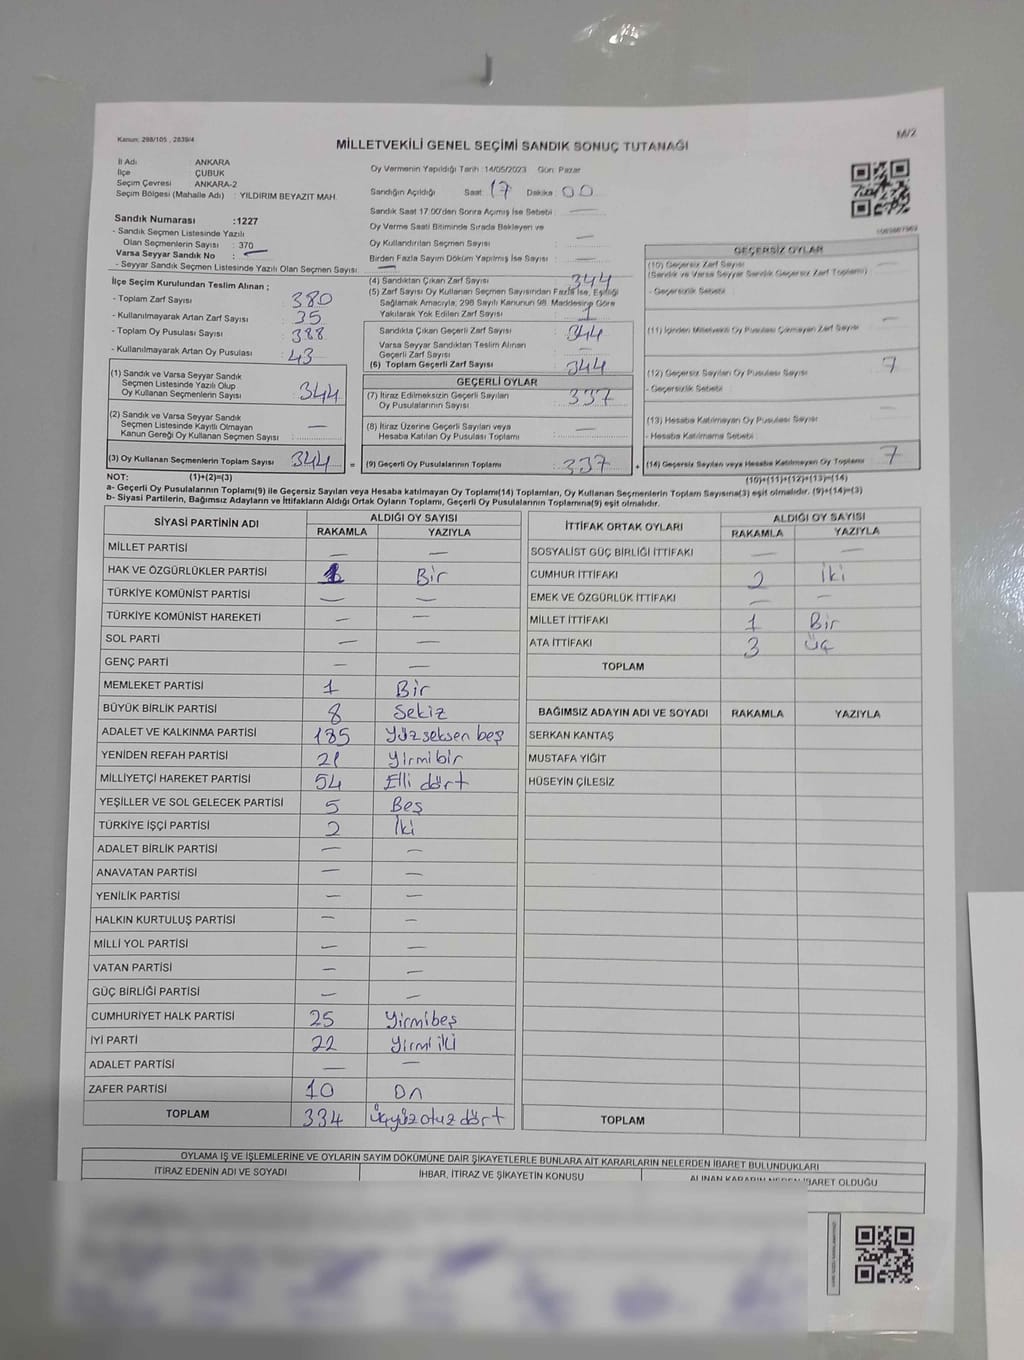 Kanun: 298/105 , 2839/4
M/2
MİLLETVEKİLİ GENEL SEÇİMİ SANDIK SONUÇ TUTANAĞI
İl Adı ANKARA
İlçe ÇUBUK
Seçim Çevresi ANKARA-2
Seçim Bölgesi (Mahalle Adı) : YILDIRIM BEYAZIT MAH.
Sandık Numarası :1227
- Sandık Seçmen Listesinde Yazılı
Olan Seçmenlerin Sayısı : 370
Varsa Seyyar Sandık No : —
- Seyyar Sandık Seçmen Listesinde Yazılı Olan Seçmen Sayısı: —
Oy Vermenin Yapıldığı Tarih :14/05/2023 Gün: Pazar
Sandığın Açıldığı Saat: 17 Dakika: 00
Sandık Saat 17:00'den Sonra Açılmış İse Sebebi : —
Oy Verme Saati Bitiminde Sırada Bekleyen ve
Oy Kullandırılan Seçmen Sayısı : —
Birden Fazla Sayım Döküm Yapılmış İse Sayısı : —
İlçe Seçim Kurulundan Teslim Alınan ;
- Toplam Zarf Sayısı : 380
- Kullanılmayarak Artan Zarf Sayısı : 35
- Toplam Oy Pusulası Sayısı : 388
- Kullanılmayarak Artan Oy Pusulası : 43
(1) Sandık ve Varsa Seyyar Sandık
Seçmen Listesinde Yazılı Olup
Oy Kullanan Seçmenlerin Sayısı : 344
(2) Sandık ve Varsa Seyyar Sandık
Seçmen Listesinde Kayıtlı Olmayan
Kanun Gereği Oy Kullanan Seçmen Sayısı : —
(3) Oy Kullanan Seçmenlerin Toplam Sayısı 344 =
(4) Sandıktan Çıkan Zarf Sayısı : 344
(5) Zarf Sayısı Oy Kullanan Seçmen Sayısından Fazla İse, Eşitliği
Sağlamak Amacıyla, 298 Sayılı Kanunun 98. Maddesine Göre
Yakılarak Yok Edilen Zarf Sayısı : 1
Sandıkta Çıkan Geçerli Zarf Sayısı : 344
Varsa Seyyar Sandıktan Teslim Alınan
Geçerli Zarf Sayısı : —
(6) Toplam Geçerli Zarf Sayısı : 344
GEÇERLİ OYLAR
(7) İtiraz Edilmeksizin Geçerli Sayılan
Oy Pusulalarının Sayısı : 337
(8) İtiraz Üzerine Geçerli Sayılan veya
Hesaba Katılan Oy Pusulası Toplamı : —
(9) Geçerli Oy Pusulalarının Toplamı : 337 +
GEÇERSİZ OYLAR
(10) Geçersiz Zarf Sayısı
(Sandık ve Varsa Seyyar Sandık Geçersiz Zarf Toplamı) —
- Geçersizlik Sebebi :
(11) İçinden Milletvekili Oy Pusulası Çıkmayan Zarf Sayısı —
(12) Geçersiz Sayılan Oy Pusulası Sayısı : 7
- Geçersizlik Sebebi :
(13) Hesaba Katılmayan Oy Pusulası Sayısı —
- Hesaba Katılmama Sebebi :
(14) Geçersiz Sayılan veya Hesaba Katılmayan Oy Toplamı : 7
NOT: (1)+(2)=(3) (10)+(11)+(12)+(13)=(14)
a- Geçerli Oy Pusulalarının Toplamı(9) ile Geçersiz Sayılan veya Hesaba katılmayan Oy Toplamı(14) Toplamları, Oy Kullanan Seçmenlerin Toplam Sayısına(3) eşit olmalıdır. (9)+(14)=(3)
b- Siyasi Partilerin, Bağımsız Adayların ve İttifakların Aldığı Ortak Oyların Toplamı, Geçerli Oy Pusulalarının Toplamına(9) eşit olmalıdır.
SİYASİ PARTİNİN ADI ALDIĞI OY SAYISI
RAKAMLA YAZIYLA
MİLLET PARTİSİ — —
HAK VE ÖZGÜRLÜKLER PARTİSİ 1 Bir
TÜRKİYE KOMÜNİST PARTİSİ — —
TÜRKİYE KOMÜNİST HAREKETİ — —
SOL PARTİ — —
GENÇ PARTİ — —
MEMLEKET PARTİSİ 1 Bir
BÜYÜK BİRLİK PARTİSİ 8 Sekiz
ADALET VE KALKINMA PARTİSİ 185 Yüzseksen beş
YENİDEN REFAH PARTİSİ 21 Yirmibir
MİLLİYETÇİ HAREKET PARTİSİ 54 Elli dört
YEŞİLLER VE SOL GELECEK PARTİSİ 5 Beş
TÜRKİYE İŞÇİ PARTİSİ 2 İki
ADALET BİRLİK PARTİSİ — —
ANAVATAN PARTİSİ — —
YENİLİK PARTİSİ — —
HALKIN KURTULUŞ PARTİSİ — —
MİLLİ YOL PARTİSİ — —
VATAN PARTİSİ — —
GÜÇ BİRLİĞİ PARTİSİ — —
CUMHURİYET HALK PARTİSİ 25 Yirmibeş
İYİ PARTİ 22 Yirmi iki
ADALET PARTİSİ — —
ZAFER PARTİSİ 10 On
TOPLAM 334 Üçyüz otuz dört
İTTİFAK ORTAK OYLARI ALDIĞI OY SAYISI
RAKAMLA YAZIYLA
SOSYALİST GÜÇ BİRLİĞİ İTTİFAKI — —
CUMHUR İTTİFAKI 2 İki
EMEK VE ÖZGÜRLÜK İTTİFAKI — —
MİLLET İTTİFAKI 1 Bir
ATA İTTİFAKI 3 Üç
TOPLAM
BAĞIMSIZ ADAYIN ADI VE SOYADI RAKAMLA YAZIYLA
SERKAN KANTAŞ
MUSTAFA YİĞİT
HÜSEYİN ÇİLESİZ
TOPLAM
OYLAMA İŞ VE İŞLEMLERİNE VE OYLARIN SAYIM DÖKÜMÜNE DAİR ŞİKAYETLERLE BUNLARA AİT KARARLARIN NELERDEN İBARET BULUNDUKLARI
İTİRAZ EDENİN ADI VE SOYADI İHBAR, İTİRAZ VE ŞİKAYETİN KONUSU ALINAN KARARIN NEDEN İBARET OLDUĞU